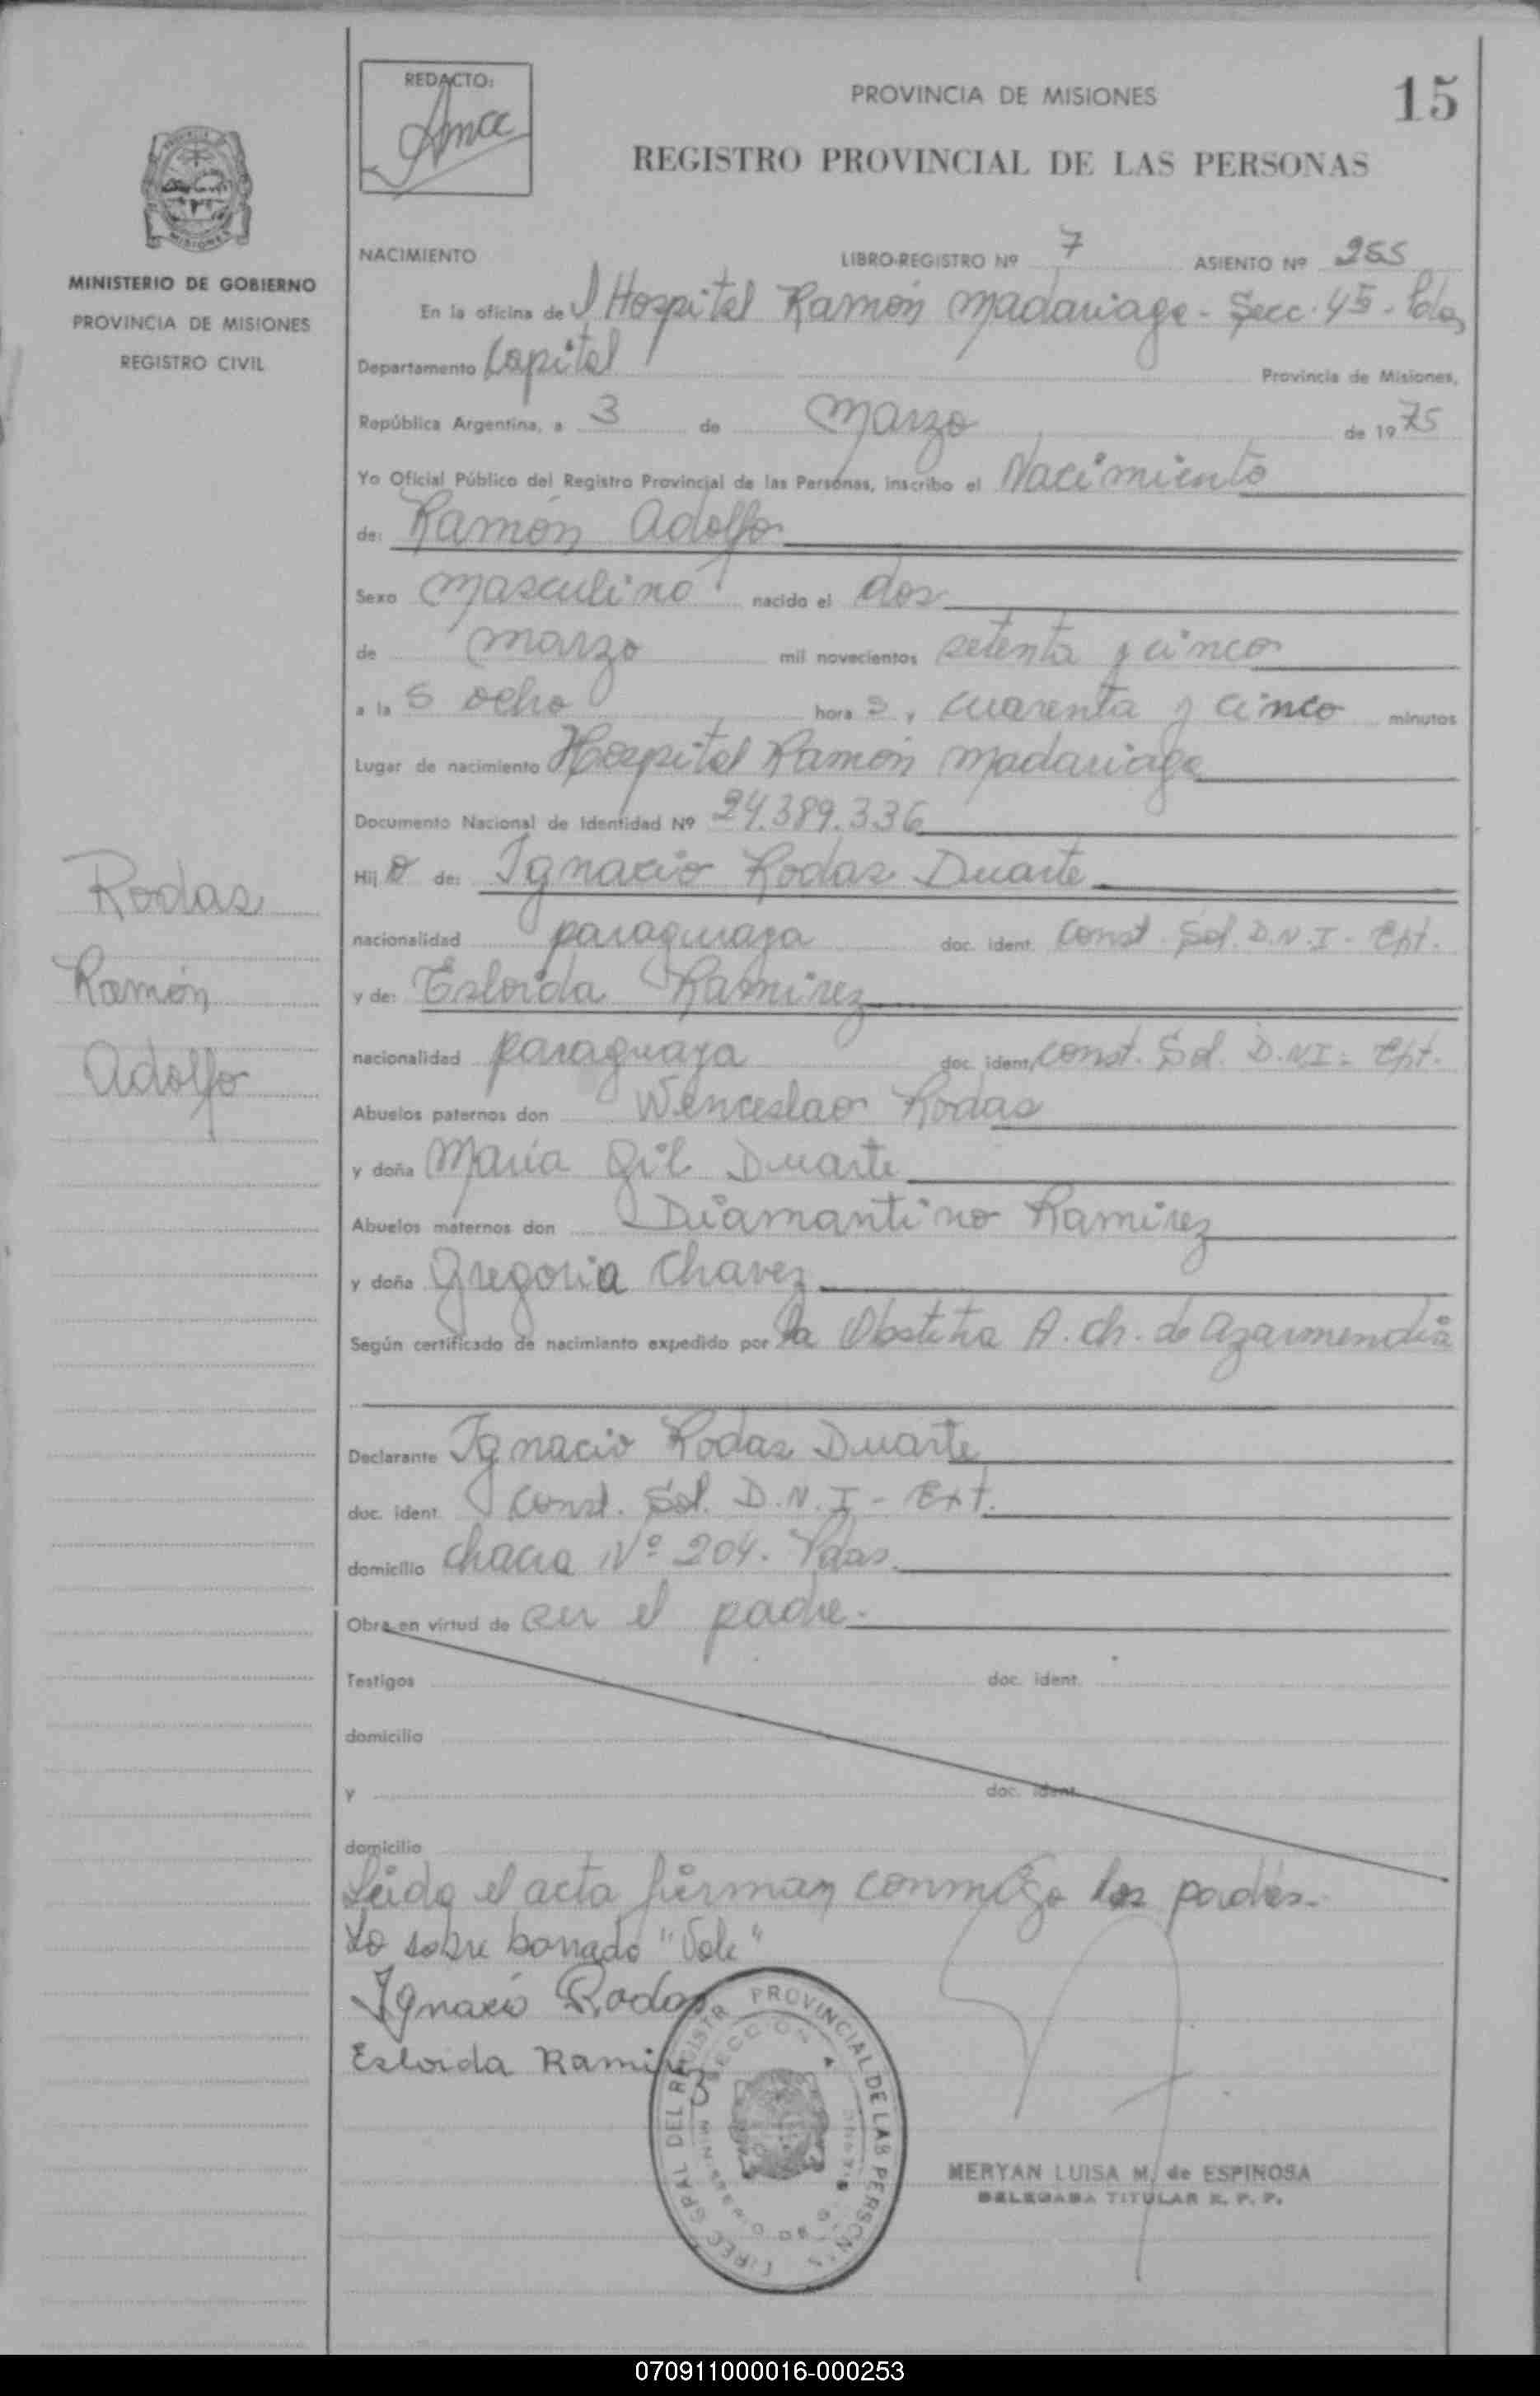 REDACTO:
PROVINCIA DE MISIONES
15
REGISTRO PROVINCIAL DE LAS PERSONAS
MINISTERIO DE GOBIERNO
PROVINCIA DE MISIONES
REGISTRO CIVIL
NACIMIENTO LIBRO-REGISTRO Nº 7 ASIENTO Nº 255
En la oficina del Hospital Ramón Madariaga - Secc. 45 - Pdas
Departamento Capital Provincia de Misiones,
República Argentina, a 3 de Marzo de 1975
Yo Oficial Público del Registro Provincial de las Personas, inscribo el Nacimiento
de: Ramón Adolfo
Sexo Masculino nacido el dos
de Marzo mil novecientos setenta y cinco
a las ocho horas, cuarenta y cinco minutos
Lugar de nacimiento Hospital Ramón Madariaga
Documento Nacional de Identidad Nº 24.389.336
Hijo de: Ignacio Rodas Duarte
nacionalidad paraguaya doc. ident. Const. Sol. D.N.I - Ext.
y de: Esloida Ramirez
nacionalidad paraguaya doc. ident. Const. Sol. D.N.I - Ext.
Abuelos paternos don Wenceslao Rodas
y doña María Gil Duarte
Abuelos maternos don Diamantino Ramirez
y doña Gregoria Chavez
Según certificado de nacimiento expedido por la Obstetra A. Ch. de Azarmendia
Declarante Ignacio Rodas Duarte
doc. ident. Const. Sol. D.N.I - Ext.
domicilio Chacra Nº 204. Pdas.
Obra en virtud de ser el padre.
Testigos doc. ident.
domicilio
y doc. ident.
domicilio
Leida el acta firman conmigo los padres.
Lo sobre borrado "Vale"
Ignacio Rodas
Esloida Ramirez
Rodas
Ramón
Adolfo
DIREC GRAL DEL REGISTR PROVINCIAL DE LAS PERSONAS
SECCION
MINISTERIO DE
MERYAN LUISA M. de ESPINOSA
DELEGADA TITULAR R. P. P.
070911000016-000253